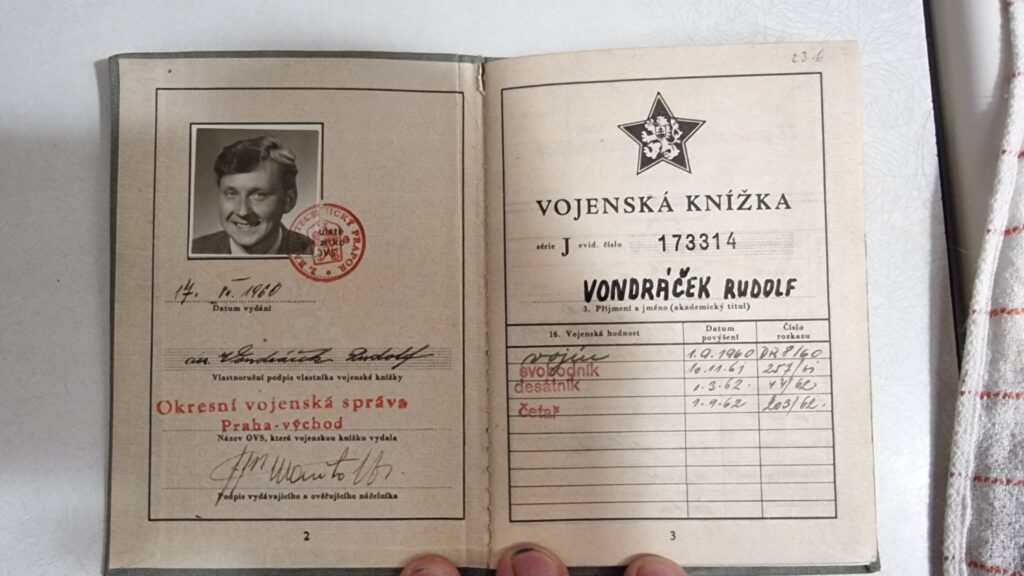 17. IV. 1960
Datum vydání
Vondráček Rudolf
Vlastnoruční podpis vlastníka vojenské knížky
Okresní vojenská správa
Praha-východ
Název OVS, která vojenskou knížku vydala
Podpis vydávajícího a ověřujícího náčelníka
2
23.6
VOJENSKÁ KNÍŽKA
série J evid. číslo 173314
VONDRÁČEK RUDOLF
3. Příjmení a jméno (akademický titul)
16. Vojenská hodnost Datum povýšení Číslo rozkazu
vojín 1.9.1960 DR 8/60
svobodník 10.11.61 257/61
desátník 1.3.62. 44/62
četař 1.9.62 203/62.
3